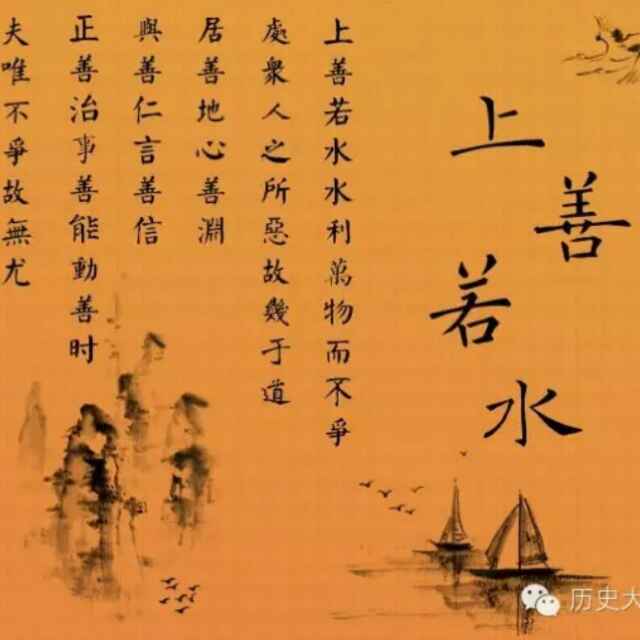 上善若水
上善若水水利萬物而不爭
處衆人之所惡故幾于道
居善地心善淵
與善仁言善信
正善治事善能動善时
夫唯不爭故無尤
历史大